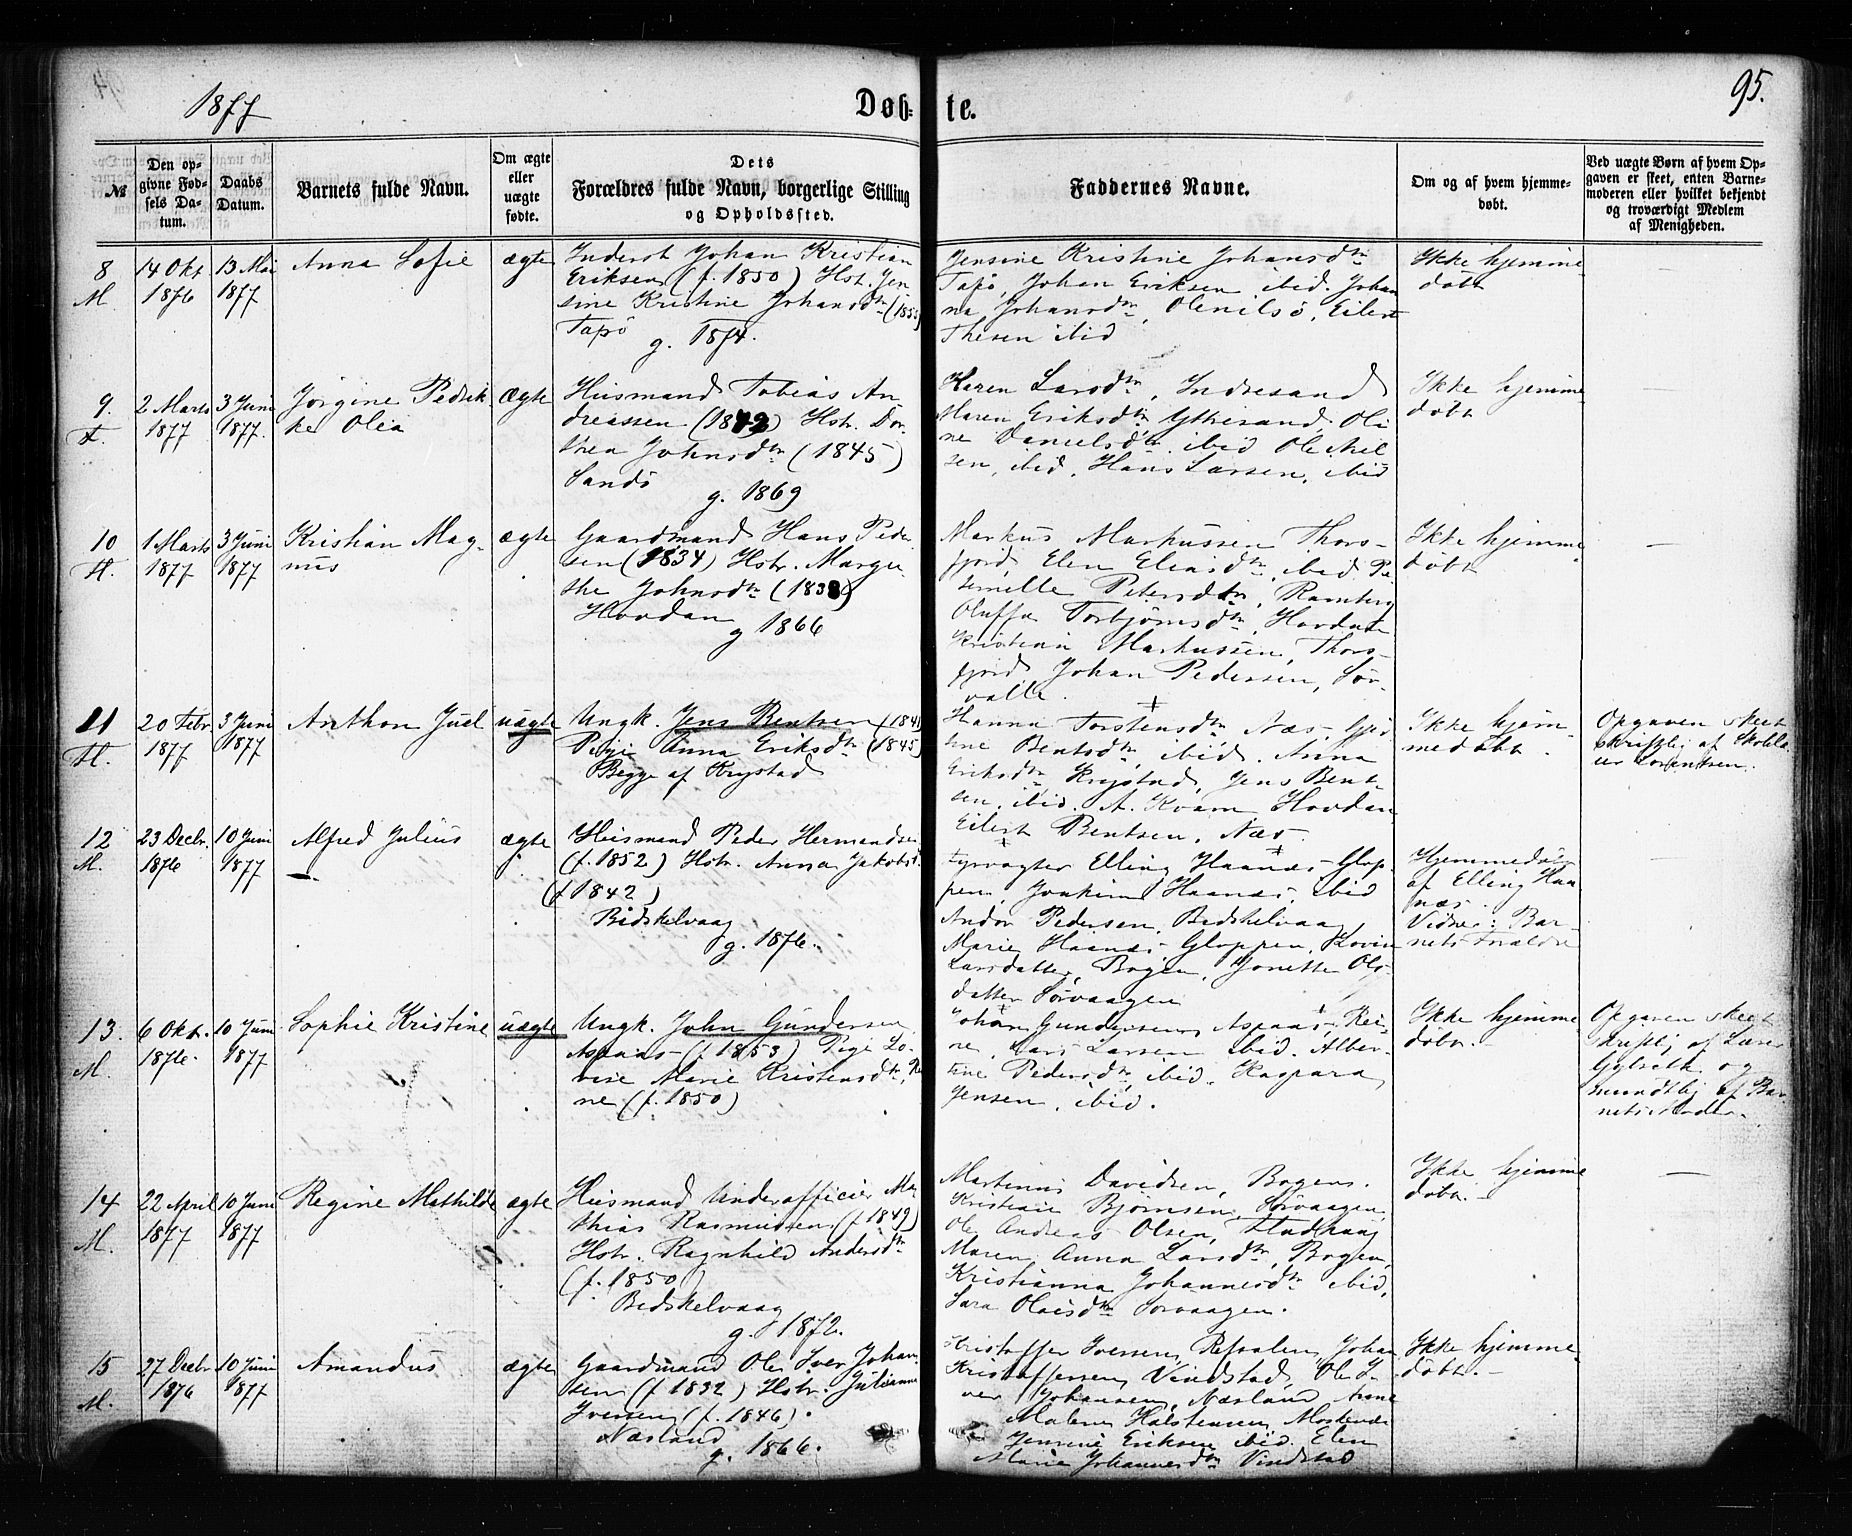 1877 Døb- te. 95.
№ Den opgivne Fødsels Datum. Daabs Datum. Barnets fulde Navn. Om ægte eller uægte fødte. Dets Forældres fulde Navn, borgerlige Stilling og Opholdssted. Faddernes Navne. Om og af hvem hjemmedøbt. Ved uægte Børn af hvem Opgaven er skeet, enten Barnemoderen eller hvilket bekjendt og troværdigt Medlem af Menigheden.
8 M. 14 Okt. 1876 13 Mai 1877 Anna Sofie ægte
Inderst Johan Kristian
Eriksen (f. 1850) Hst. Jen
sine Kristine Johansdtr
Tapö g. 1874.
Jensine Kristine Johansdtr
Tapö, Johan Eriksen ibid. Johan
na Johansdtr, Olenilsö, Eilert
Thesen ibid
Ikke hjemme
døbt
9. 2 Marts 1877 3 Juni 1877. Jørgine Pedrik
ke Olea ægte
Huismand Tobias An
dreassen Hstr. Dor
thea Johnsdtr (1845)
Sandö g. 1869
Karen Larsdtr, Indresand
Maren Eriksdtr Yttresand, Oli
ne Danielsdtr ibid Ole Niel
sen, ibid, Hans Larsen, ibid
Ikke hjemme
døbt
10 H. 1 Marts 1877 3 Juni 1877 Kristian Mag-
nus ægte
Gaardmand Hans Peder
sen (1834) Hstr. Margre
the Johnsdtr (1838)
Hovdan g 1866
Markus Markussen Thors-
fjord, Elen Eliasdtr, ibid. Pe
ternelle Petersdtr, Ramberg
Oluffa Torbjörnsdtr, Hovdan
Kristian Markussen, Thors-
fjord, Johan Pedersen, Sör-
valle.
Ikke hjemme
døbt
11 H. 20 Febr. 1877 3 Juni 1877 Anthon Juel uægte
Ungk. Jens Bentsen (1841
Pige Anna Eriksdtr (1845)
Begge af Krystad
Hanna Torstensdtr Næs,
tine Bentsdtr, ibid. Anna
Eriksdtr Krystad, Jens Bent
sen, ibid. A. Kvam Hovdan
Eilert Bentsen, Næs.
Ikke hjem-
medøbt.
Opgaven skeet
skriftlig af Skolelæ
rer Lorentsen.
12 M. 23 Decbr. 1876 10 Juni 1877 Alfred Julius ægte
Huismand Peder Hermandsen
(f. 1852) Hstr. Anna Jakobsd.
(f. 1842)
Bidskelvaag
g. 1876.
Fyrvogter Elling Haanæs Glop
pen, Joakim Haanæs, ibid
Andor Pedersen, Bidskelvaag
Marie Haanæs Gloppen, Lovin
Larsdatter, Bogen, Jonette Ols
datter Sørvaagen
Hjemmedøbt
af Elling Haa
næs.
Vidner: Bar-
nets Forældre
13. M. 6 Okt. 1876. 10 Juni 1877 Sophie Kristine uægte
Ungk. John Gundersen
Aspaas (f. 1853) Pige Lo-
vise Marie Kristensdtr, Rei
ne (f. 1850)
Johan Gundersen, Aspaas, Rei-
ne, Lars Larsen ibid. Alber-
tine Pedersdtr, ibid. Kaspara
Jensen, ibid.
Ikke hjemme
døbt.
Opgaven skeet
skriftlig af Lærer
Gylseth og
mundtlig af Bar
nets Moder.
14 M. 22 April 1877 10 Juni 1877 Regine Mathilde ægte
Huismand Underofficier Ma
thias Rasmussen (f. 1849)
Hstr. Ragnhild Andersdtr
(f. 1850)
Bidskelvaag
g. 1872.
Martinus Davidsen, Bogen.
Kristian Bjørnsen, Sørvaagen
Ole Andreas Olsen,
Maren Anna Larsdtr, Bogen
Kristianna Johannesdtr ibid,
Sara Olaisdtr Sørvaagen.
Ikke hjemme
døbt.
15 M. 27 Decbr 1876 10 Juni 1877 Amandus ægte
Gaardmand Ole Iver Johan-
sen (f 1832) Hstr. Julianne
Iversen (f. 1846).
Næsland
g. 1866.
Kristoffer Iversen, Refsalen, Johan
Kristoffersen, Vindstad, Ole I-
ver Johansen, Næsland, Anne
Malene Halstensen, Moskenæs
Jensine Eriksen ibid. Elen
Marie Johannesdtr Vindstad
Ikke hjemme-
døbt.